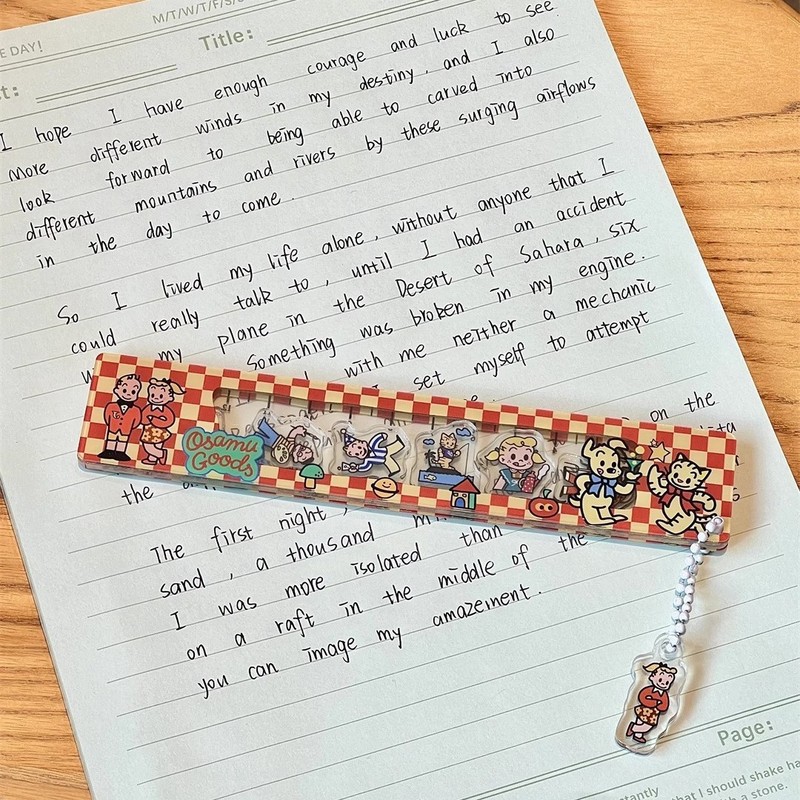 E DAY!
M/T/W/T/F/S/
Title:
I hope I have enough courage and luck to see
more different winds in my destiny, and I also
look forward to being able to carved into
different mountains and rivers by these surging airflows
in the day to come.
So I lived my life alone, without anyone that I
could really talk to, until I had an accident
my plane in the Desert of Sahara, six
Something was broken in my engine.
with me neither a mechanic
set myself to attempt
on the
the
Osamu
Goods
The first night,
sand, a thousand
I was more isolated than
on a raft in the middle of the
you can image my amazement.
Page:
that I should shake ha
stantly
h a stone.